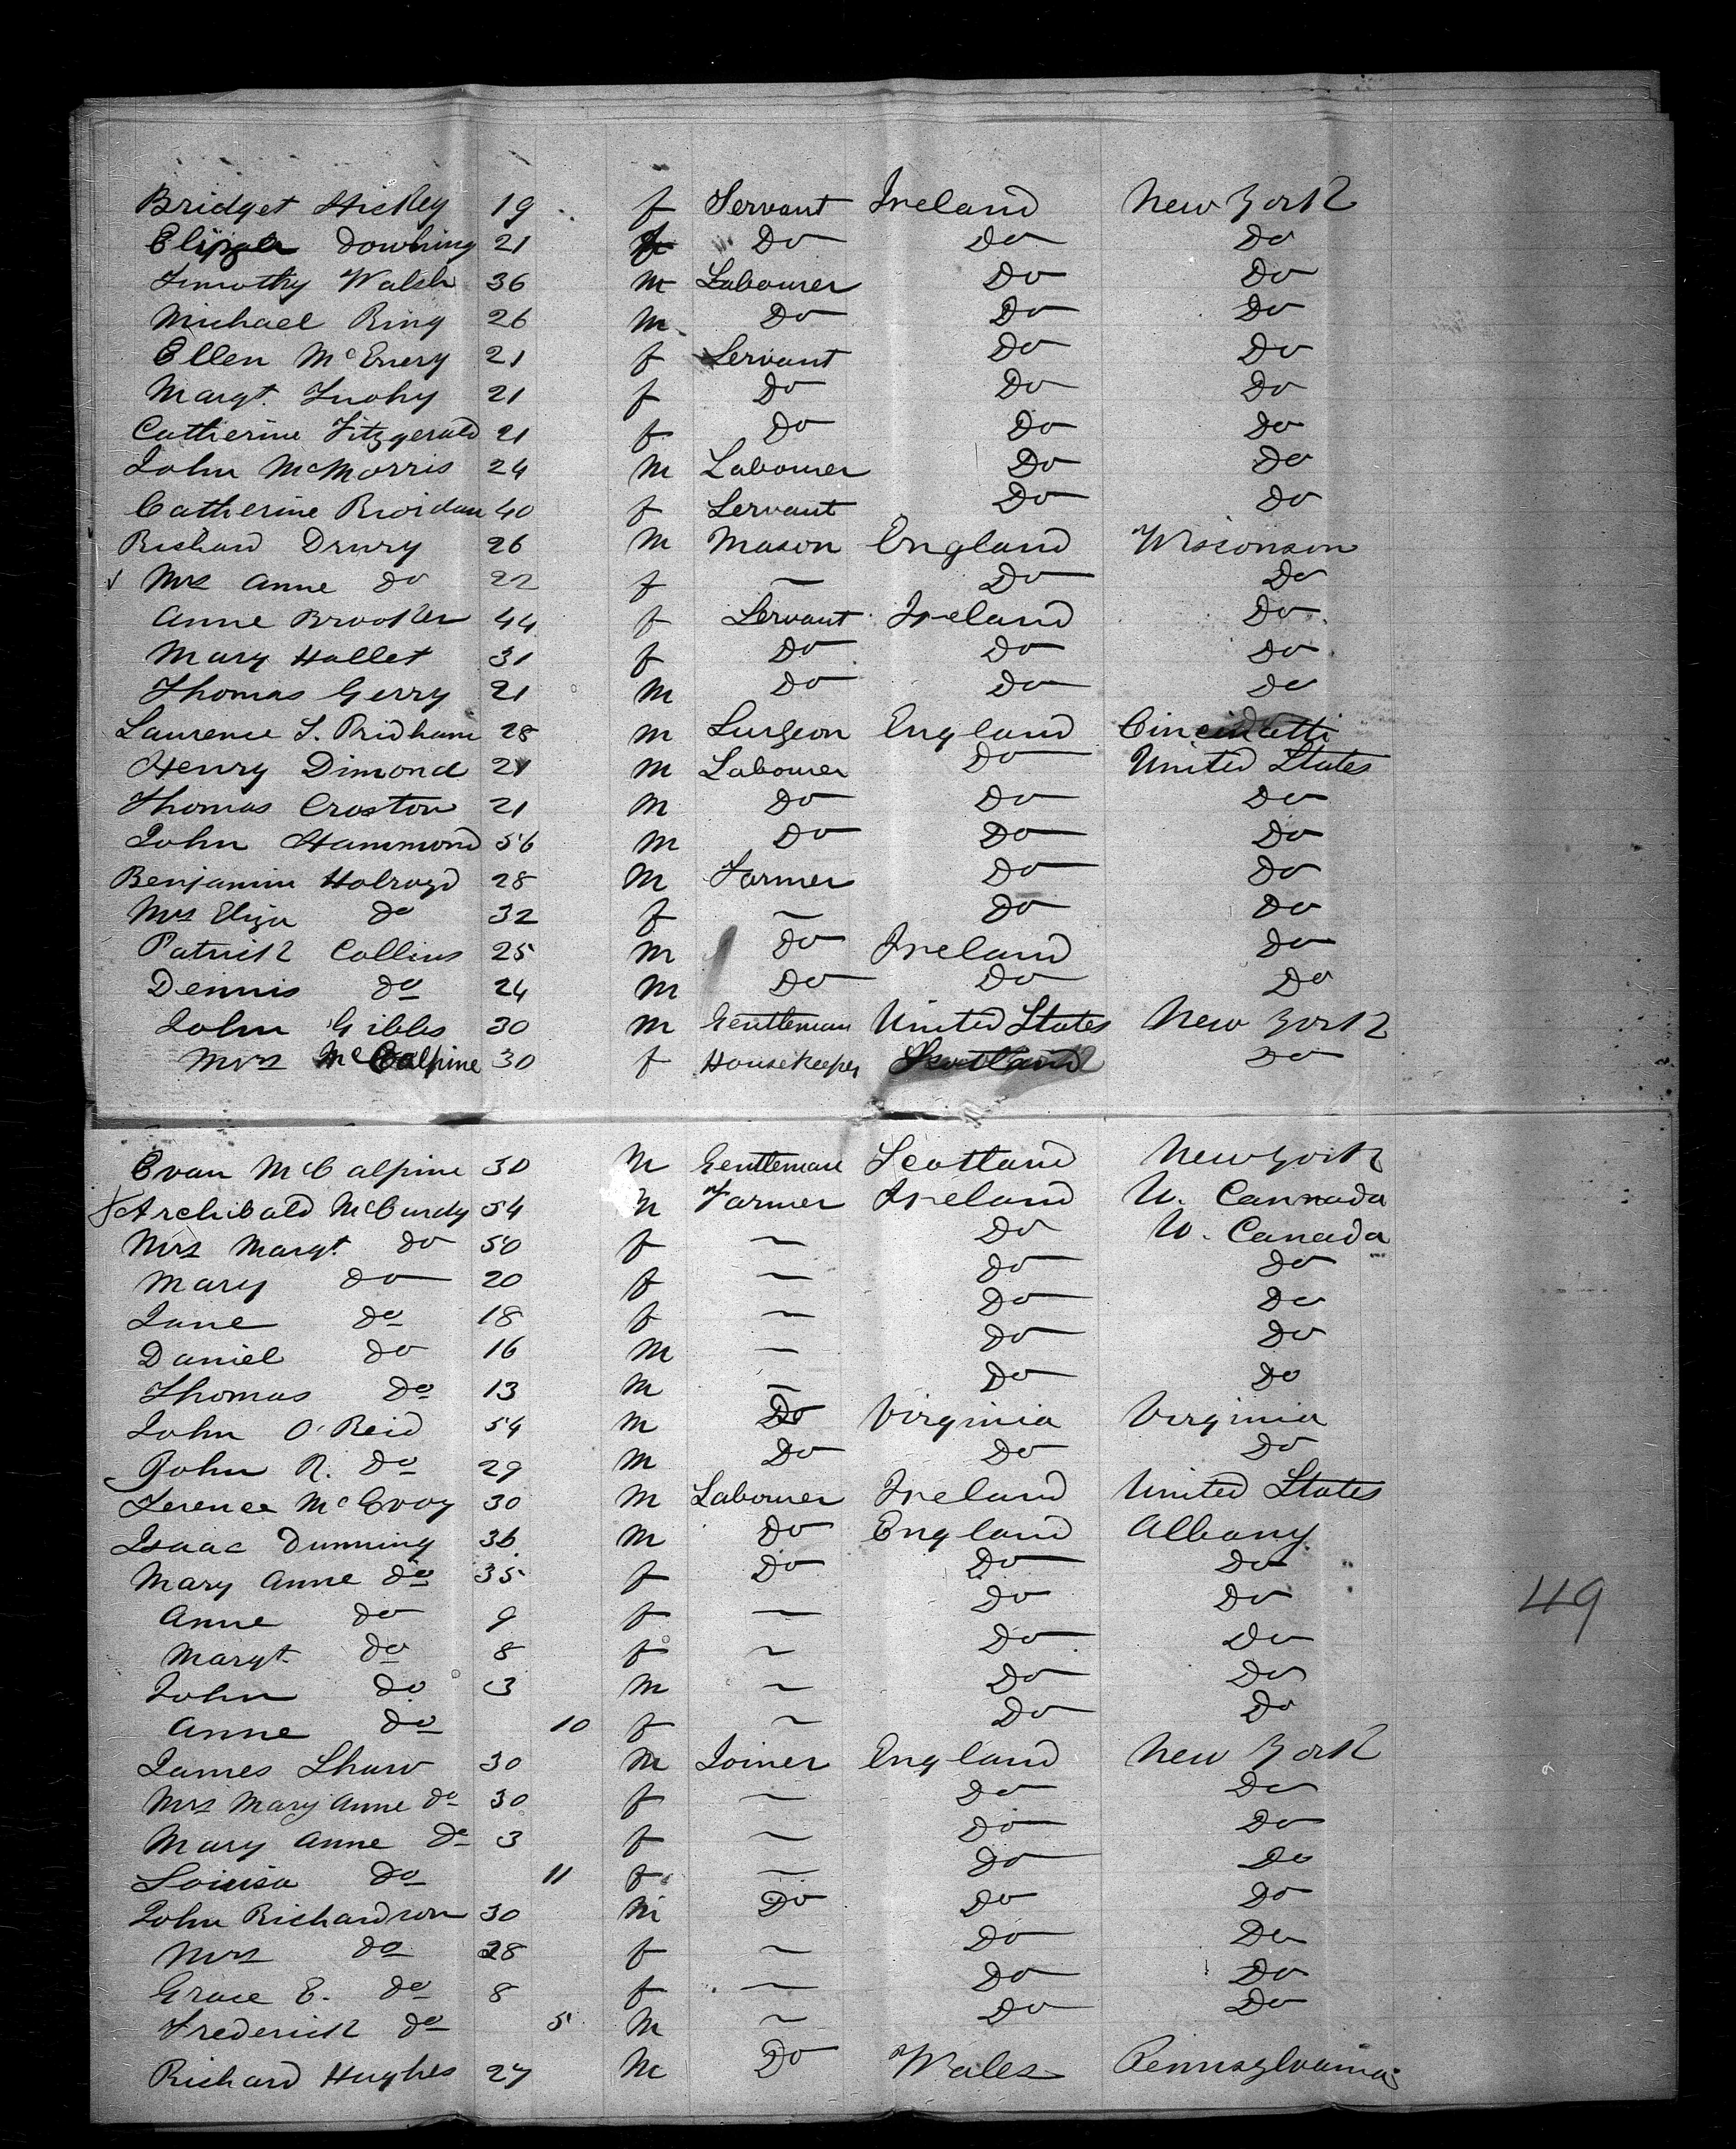 Bridget Hickey 19 f Servant Ireland New York
Eliza Dowling 21 f Do Do Do
Timothy Walsh 36 m Labourer Do Do
Michael Ring 26 m Do Do Do
Ellen McEnery 21 f Servant Do Do
Margt. Tuohy 21 f Do Do Do
Catherine Fitzgerald 21 f Do Do Do
John McMorris 24 m Labourer Do Do
Catherine Riordan 40 f Servant Do Do
Richard Drury 26 m Mason England Wisconson
Mrs Anne do 22 f ~ Do Do
Anne Brooker 44 f Servant Ireland Do
Mary Hallet 31 f Do Do Do
Thomas Gerry 21 m Do Do Do
Laurence S. Pridham 28 m Surgeon England Cincinatti
Henry Dimond 21 m Labourer Do United States
Thomas Croston 21 m Do Do Do
John Hammond 56 m Do Do Do
Benjamin Holroyd 28 m Farmer Do Do
Mrs Eliza do 32 f ~ Do Do
Patrick Collins 25 m Do Ireland Do
Dennis do 24 m Do Do Do
John Gibbs 30 m Gentleman United States New York
Mrs McCalpine 30 f Housekeeper Scotland Do
Evan McCalpine 30 m Gentleman Scotland New York
Archibald McCurdy 54 m Farmer Ireland U. Cannada
Mrs Margt do 50 f ~ Do U. Canada
Mary do 20 f ~ Do Do
Jane do 18 f ~ Do Do
Daniel do 16 m ~ Do Do
Thomas do 13 m ~ Do Do
John O'Reid 54 m Do Virginia Virginia
John R. Do 29 m Do Do Do
Terence McEvoy 30 m Labourer Ireland United States
Isaac Dunning 36 m Do England Albany
Mary Anne do 35 f Do Do Do
Anne do 9 f ~ Do Do
Margt. do 8 f ~ Do Do
John do 3 m ~ Do Do
Anne do 10 f ~ Do Do
James Shaw 30 m Joiner England New York
Mrs Mary Anne do 30 f ~ Do Do
Mary Anne do 3 f ~ Do Do
Louisa do 11 f ~ Do Do
John Richardson 30 m Do Do Do
Mrs do 28 f ~ Do Do
Grace E. do 8 f ~ Do Do
Frederick do 5 m ~ Do Do
Richard Hughes 27 m Do Wales Pennsylvania
49